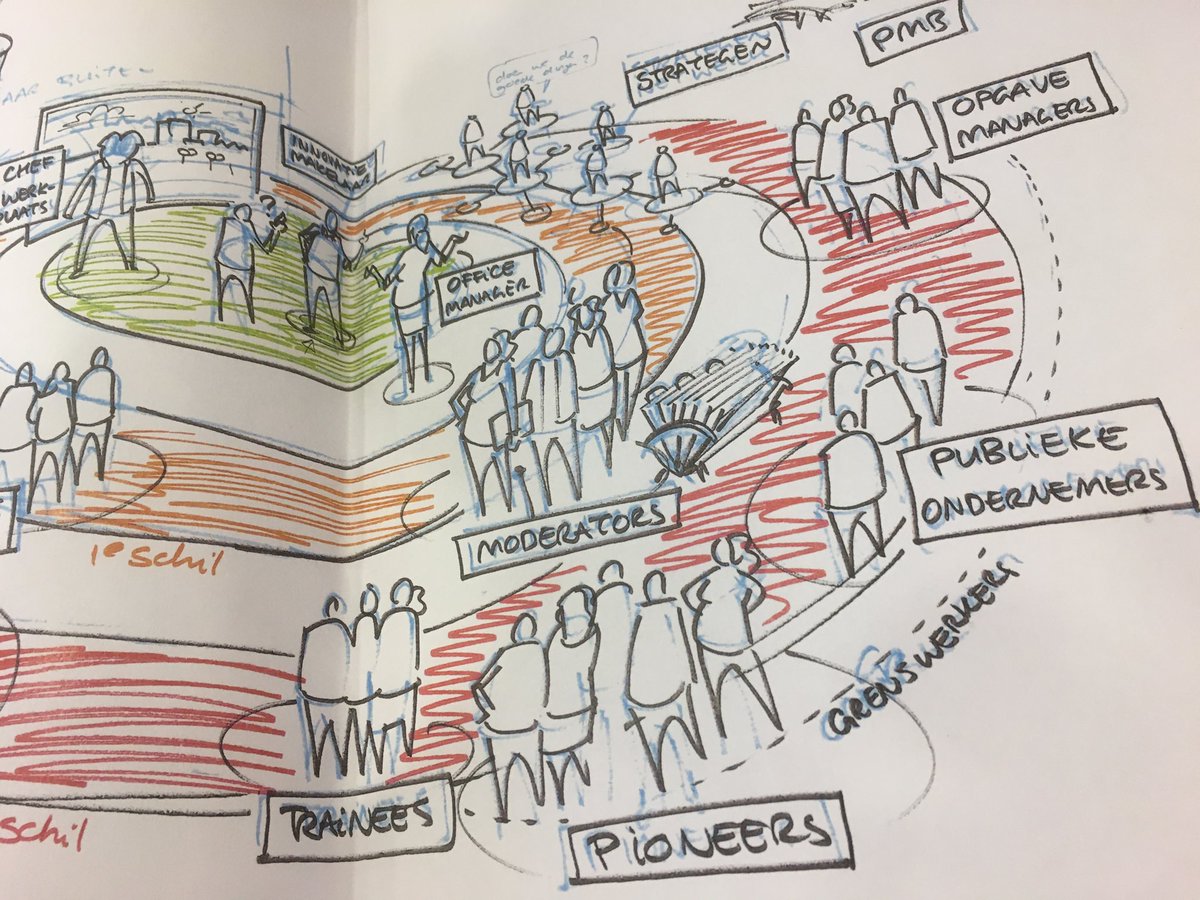 AAR BUITEN
doen we de
goede dingen?
STRATEGEN
PMB
OPGAVE
MANAGERS
CHEF
WERK-
PLAATS
INNOVATIE
MAKELAAR
OFFICE
MANAGER
MODERATORS
PUBLIEKE
ONDERNEMERS
1e SCHIL
GRENSWERKERS
TRAINEES
SCHIL
PIONEERS